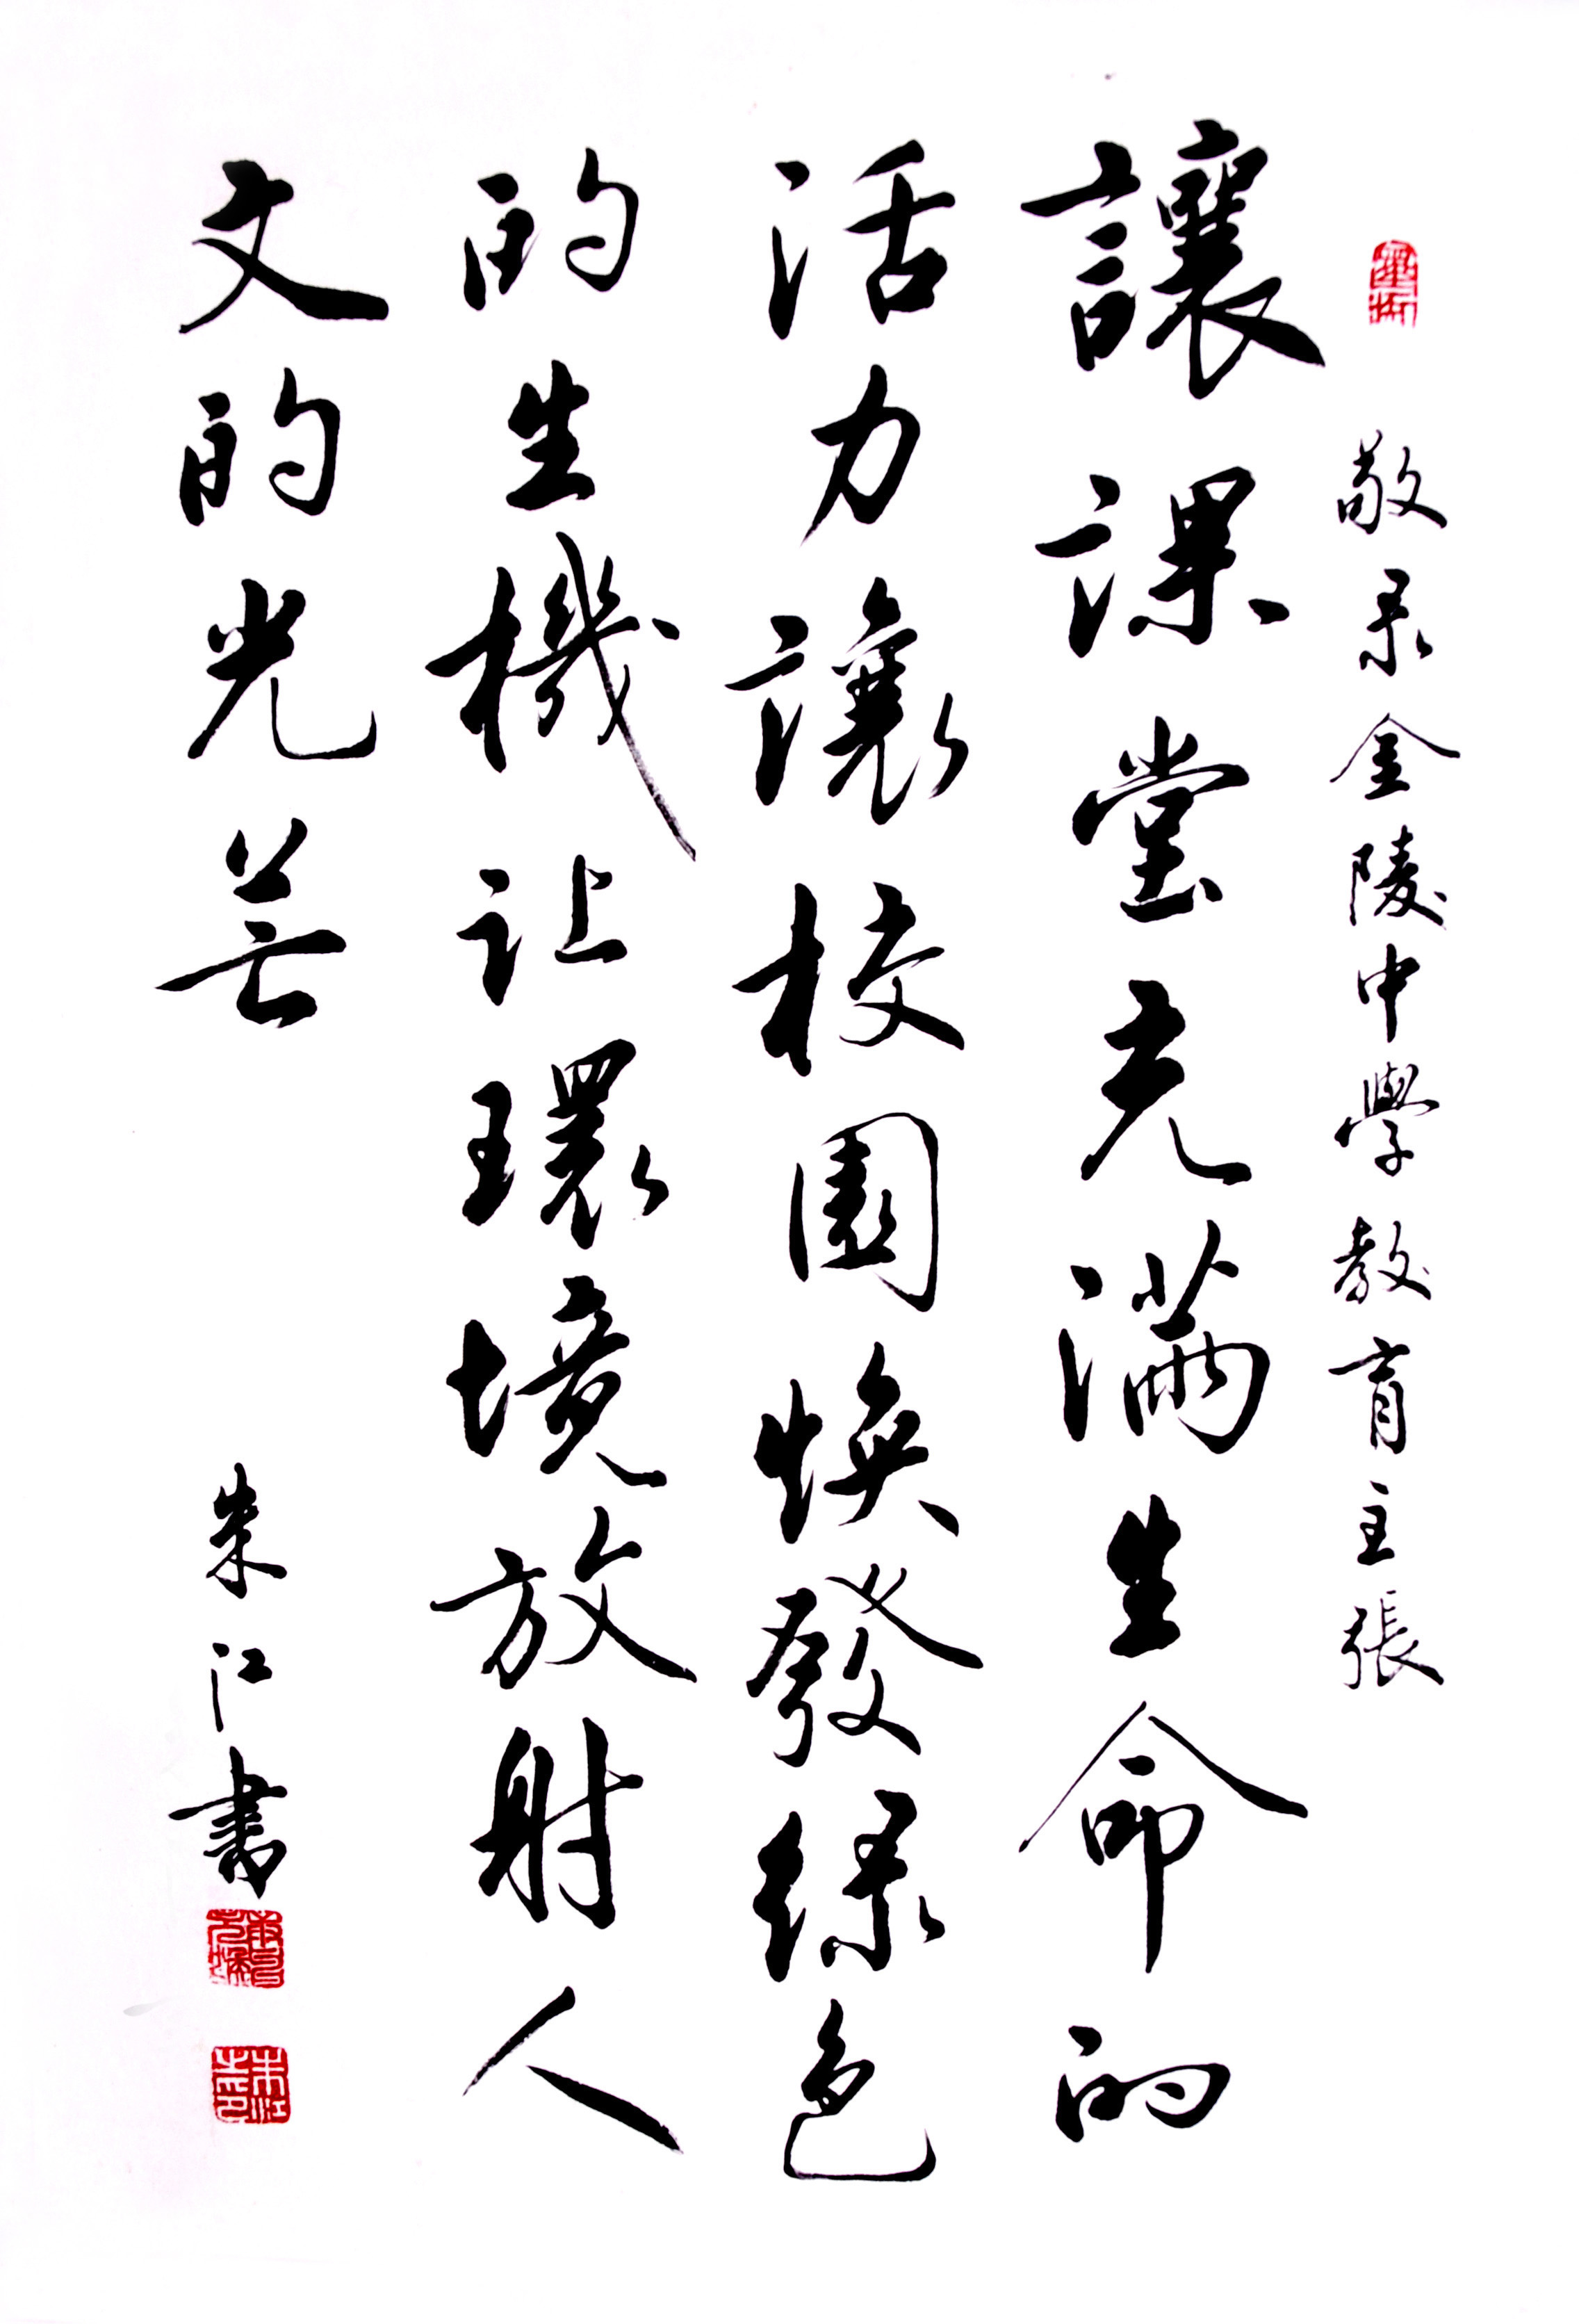 敬录金陵中學教育主張
讓課堂充滿生命的
活力讓校園焕發緑色
的生機让環境放射人
文的光芒
朱江書
朱江之印